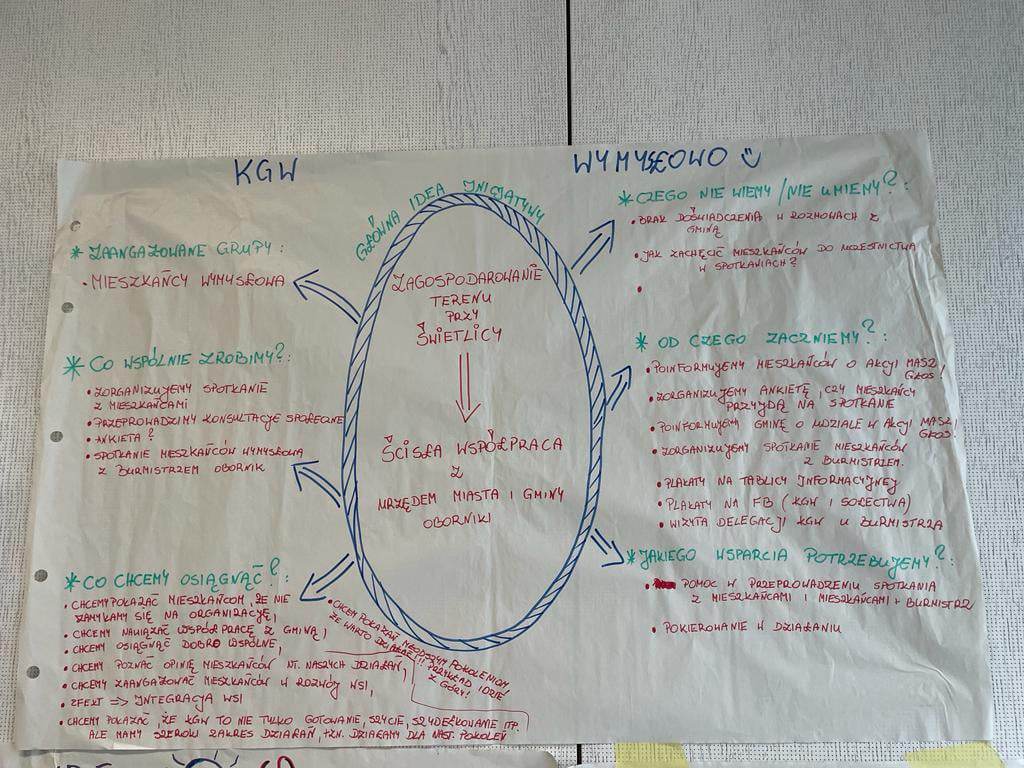 KGW
WYMYSŁOWO
GŁÓWNA IDEA INICJATYWY
ZAGOSPODAROWANIE
TERENU
PRZY
ŚWIETLICY
ŚCISŁA WSPÓŁPRACA
Z
URZĘDEM MIASTA I GMINY
OBORNIKI
* ZAANGAŻOWANE GRUPY:
• MIESZKAŃCY WYMYSŁOWA
* CO WSPÓLNIE ZROBIMY?:
• ZORGANIZUJEMY SPOTKANIE
Z MIESZKAŃCAMI
• PRZEPROWADZIMY KONSULTACJE SPOŁECZNE
• ANKIETA?
• SPOTKANIE MIESZKAŃCÓW WYMYSŁOWA
Z BURMISTRZEM OBORNIK
* CO CHCEMY OSIĄGNĄĆ?:
• CHCEMY POKAZAĆ MIESZKAŃCOM, ŻE NIE
ZAMYKAMY SIĘ NA ORGANIZACJĘ,
• CHCEMY NAWIĄZAĆ WSPÓŁPRACĘ Z GMINĄ,
• CHCEMY OSIĄGNĄĆ DOBRO WSPÓLNE,
• CHCEMY POZNAĆ OPINIĘ MIESZKAŃCÓW NT. NASZYCH DZIAŁAŃ,
• CHCEMY ZAANGAŻOWAĆ MIESZKAŃCÓW W ROZWÓJ WSI,
• EFEKT => INTEGRACJA WSI
• CHCEMY POKAZAĆ, ŻE KGW TO NIE TYLKO GOTOWANIE, SZYCIE, SZYDEŁKOWANIE ITP.
ALE MAMY SZEROKI ZAKRES DZIAŁAŃ, TZN. DZIAŁAMY DLA NAST. POKOLEŃ
• CHCEMY POKAZAĆ MŁODSZYM POKOLENIOM!
ŻE WARTO DZIAŁAĆ!!! PRZYKŁAD IDZIE
Z GÓRY!
* CZEGO NIE WIEMY / NIE UMIEMY?:
• BRAK DOŚWIADCZENIA W ROZMOWACH Z
GMINĄ
• JAK ZACHĘCIĆ MIESZKAŃCÓW DO UCZESTNICTWA
W SPOTKANIACH?
•
* OD CZEGO ZACZNIEMY?:
• POINFORMUJEMY MIESZKAŃCÓW O AKCJI MASZ
GŁOS!
• ZORGANIZUJEMY ANKIETĘ, CZY MIESZKAŃCY
PRZYJDĄ NA SPOTKANIE
• POINFORMUJEMY GMINĘ O UDZIALE W AKCJI MASZ
GŁOS!
• ZORGANIZUJEMY SPOTKANIE MIESZKAŃCÓW
Z BURMISTRZEM.
• PLAKATY NA TABLICY INFORMACYJNEJ
• PLAKATY NA FB (KGW I SOŁECTWA)
• WIZYTA DELEGACJI KGW U BURMISTRZA
* JAKIEGO WSPARCIA POTRZEBUJEMY?:
• POMOC W PRZEPROWADZENIU SPOTKANIA
Z MIESZKAŃCAMI I MIESZKAŃCAMI + BURMISTRZ
• POKIEROWANIE W DZIAŁANIU